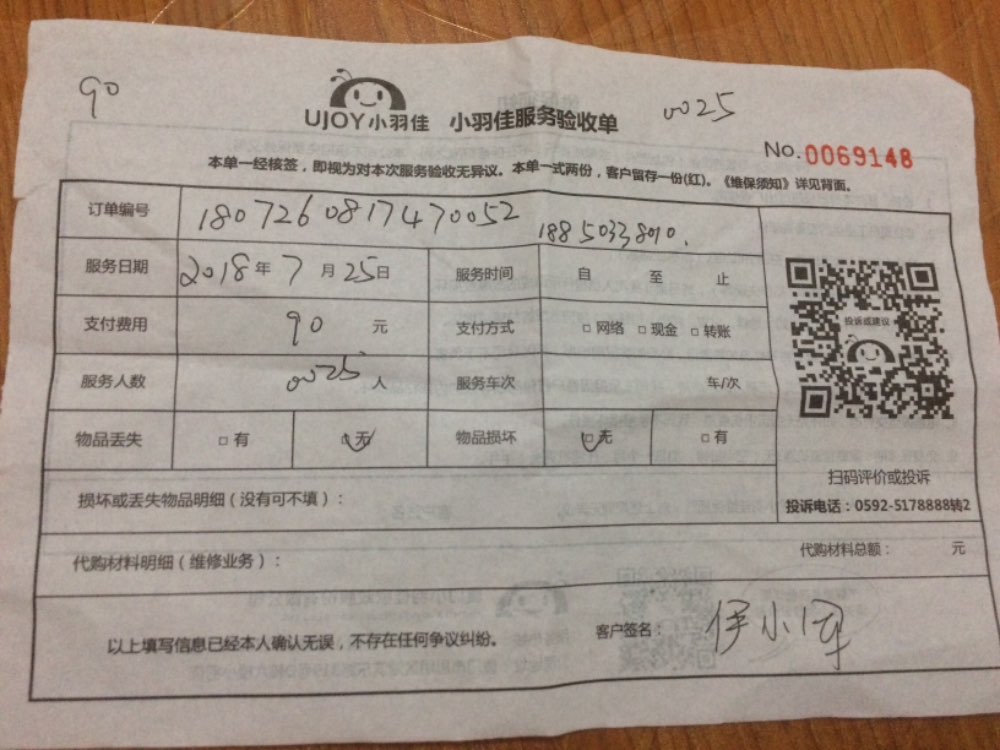 90
UJOY小羽佳 小羽佳服务验收单
0025
No.0069148
本单一经核签，即视为对本次服务验收无异议。本单一式两份，客户留存一份(红)。《维保须知》详见背面。
订单编号 180726081747 0052 18850338010.
服务日期 2018年7月25日 服务时间 自 至 止
支付费用 90 元 支付方式 □网络 □现金 □转账
服务人数 0025人 服务车次 车/次
物品丢失 □有 □无 物品损坏 □无 □有
投诉或建议
扫码评价或投诉
投诉电话：0592-5178888转2
损坏或丢失物品明细（没有可不填）：
代购材料明细（维修业务）： 代购材料总额： 元
以上填写信息已经本人确认无误，不存在任何争议纠纷。 客户签名： 伊小